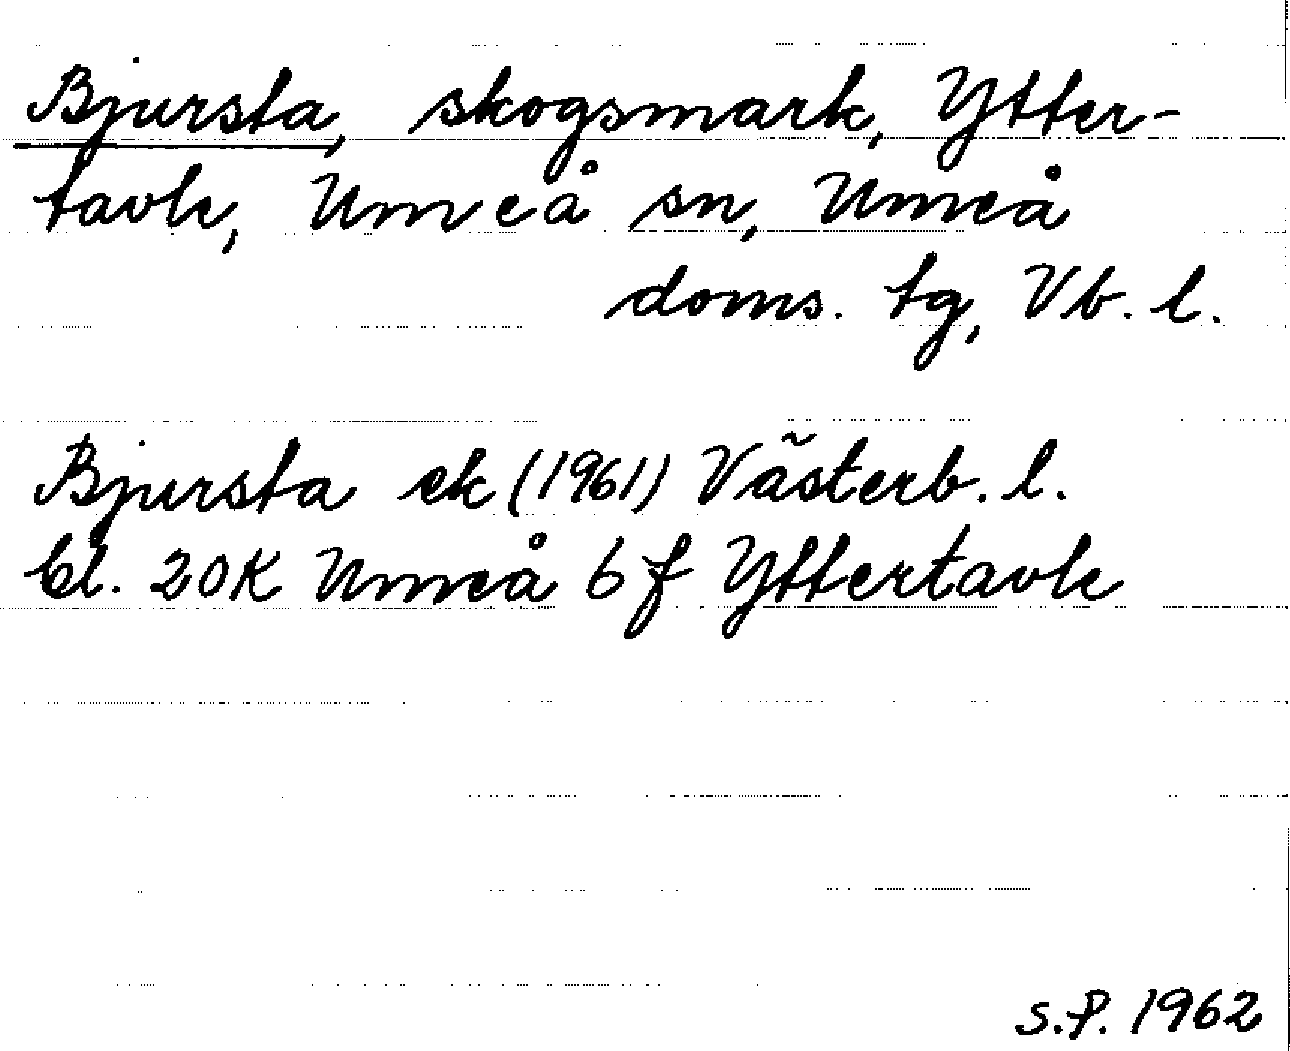 Bjursta, skogsmark, Ytter-
tavle, Umeå sn, Umeå
doms. tg, Vb. l.
Bjursta ek (1961) Västerb. l.
Bl. 20K Umeå 6f Yttertavle
S.P. 1962